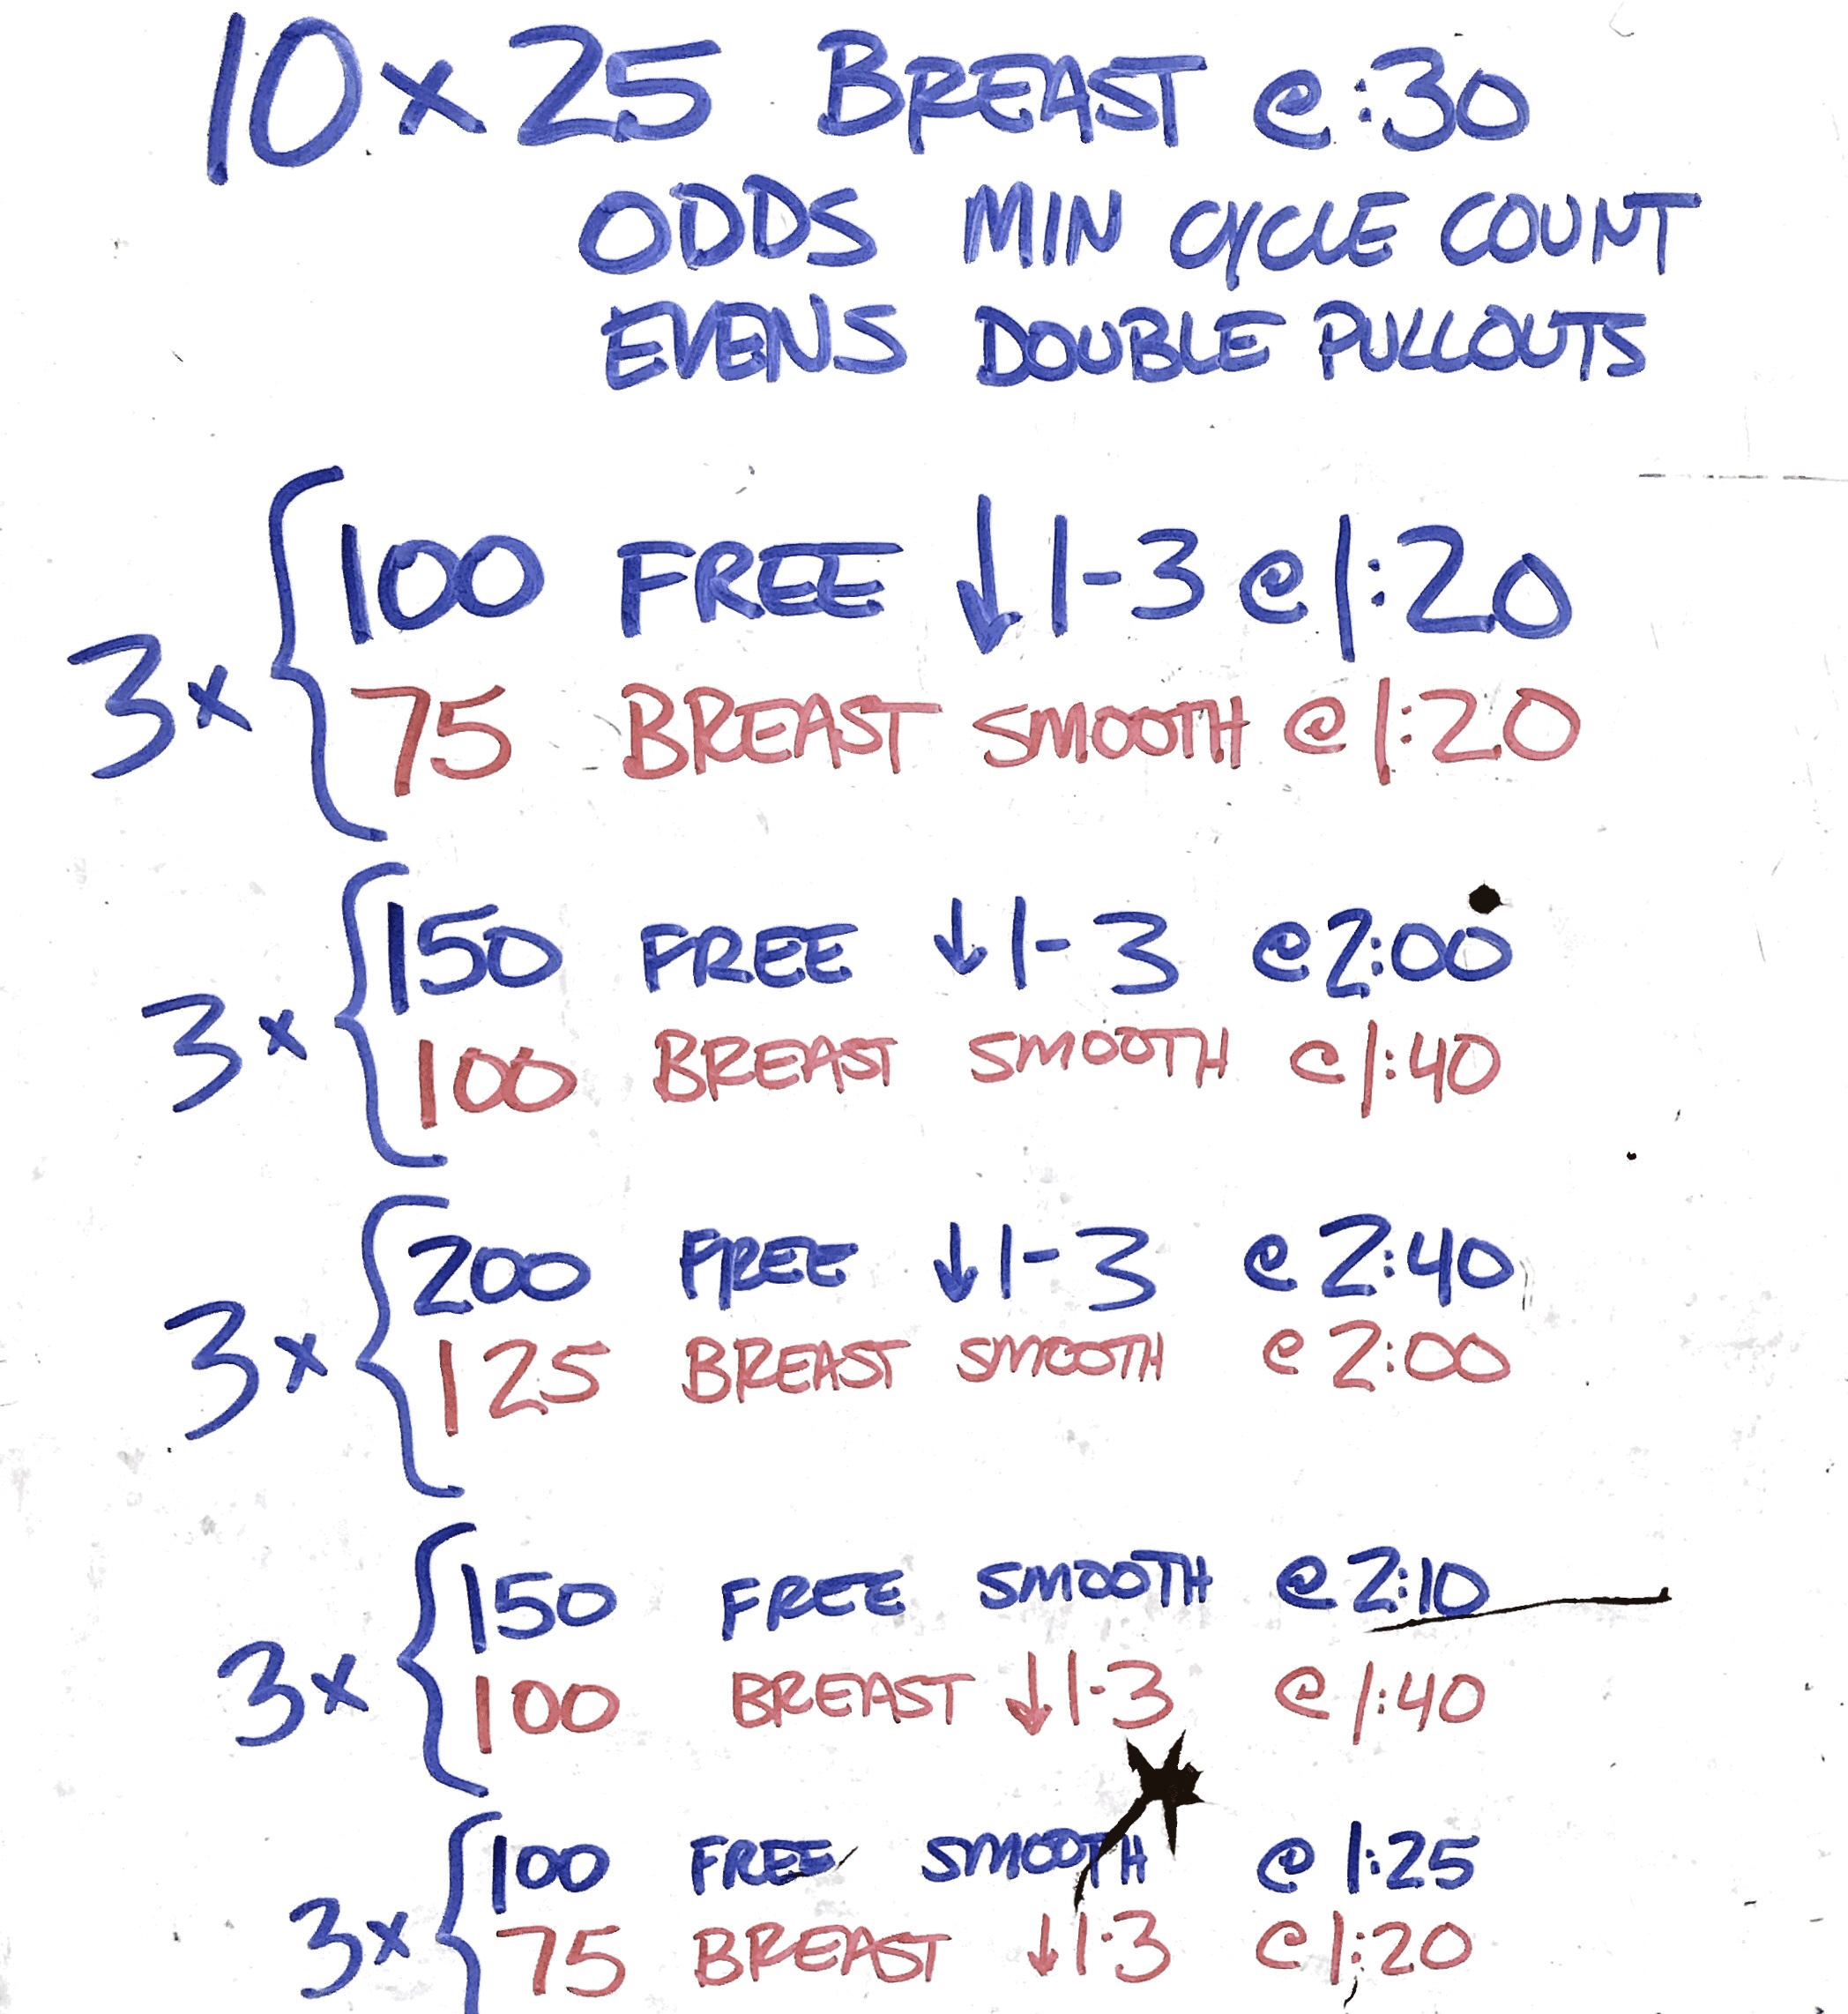 10 x 25 BREAST @ :30
ODDS MIN CYCLE COUNT
EVENS DOUBLE PULLOUTS
3x { 100 FREE ↓ 1-3 @ 1:20
75 BREAST SMOOTH @ 1:20
3x { 150 FREE ↓ 1-3 @ 2:00
100 BREAST SMOOTH @ 1:40
3x { 200 FREE ↓ 1-3 @ 2:40
125 BREAST SMOOTH @ 2:00
3x { 150 FREE SMOOTH @ 2:10
100 BREAST ↓ 1-3 @ 1:40
3x { 100 FREE SMOOTH @ 1:25
75 BREAST ↓ 1-3 @ 1:20